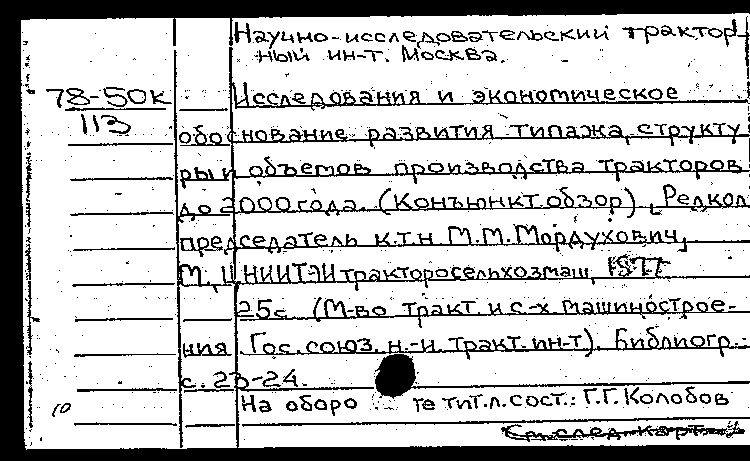 Научно-исследовательский трактор-
ный ин-т. Москва.
78-50к
113
Исследования и экономическое
обоснование развития типажа, структу
ры и объемов производства тракторов
до 2000 года. (Конъюнкт. обзор), [Редкол.
председатель к.т.н М.М. Мордухович,
М., ЦНИИТЭИтракторосельхозмаш, 1977
25с. (М-во тракт. и с-х. машинострое-
ния. Гос. союз. н.-и. тракт. ин-т). Библиогр.:
с. 23-24.
10
На оборо те тит.л. сост.: Г.Г. Колобов
См. след. карт.